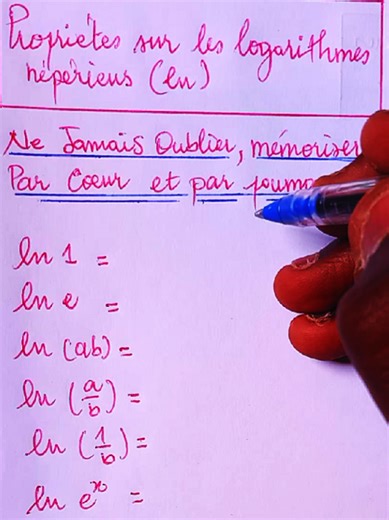 Propriétes sur les logarithmes
népériens (ln)
Ne Jamais Oublier, mémoriser
Par Coeur et par
ln 1 =
ln e =
ln (ab) =
ln (a/b) =
ln (1/b) =
ln e^x =